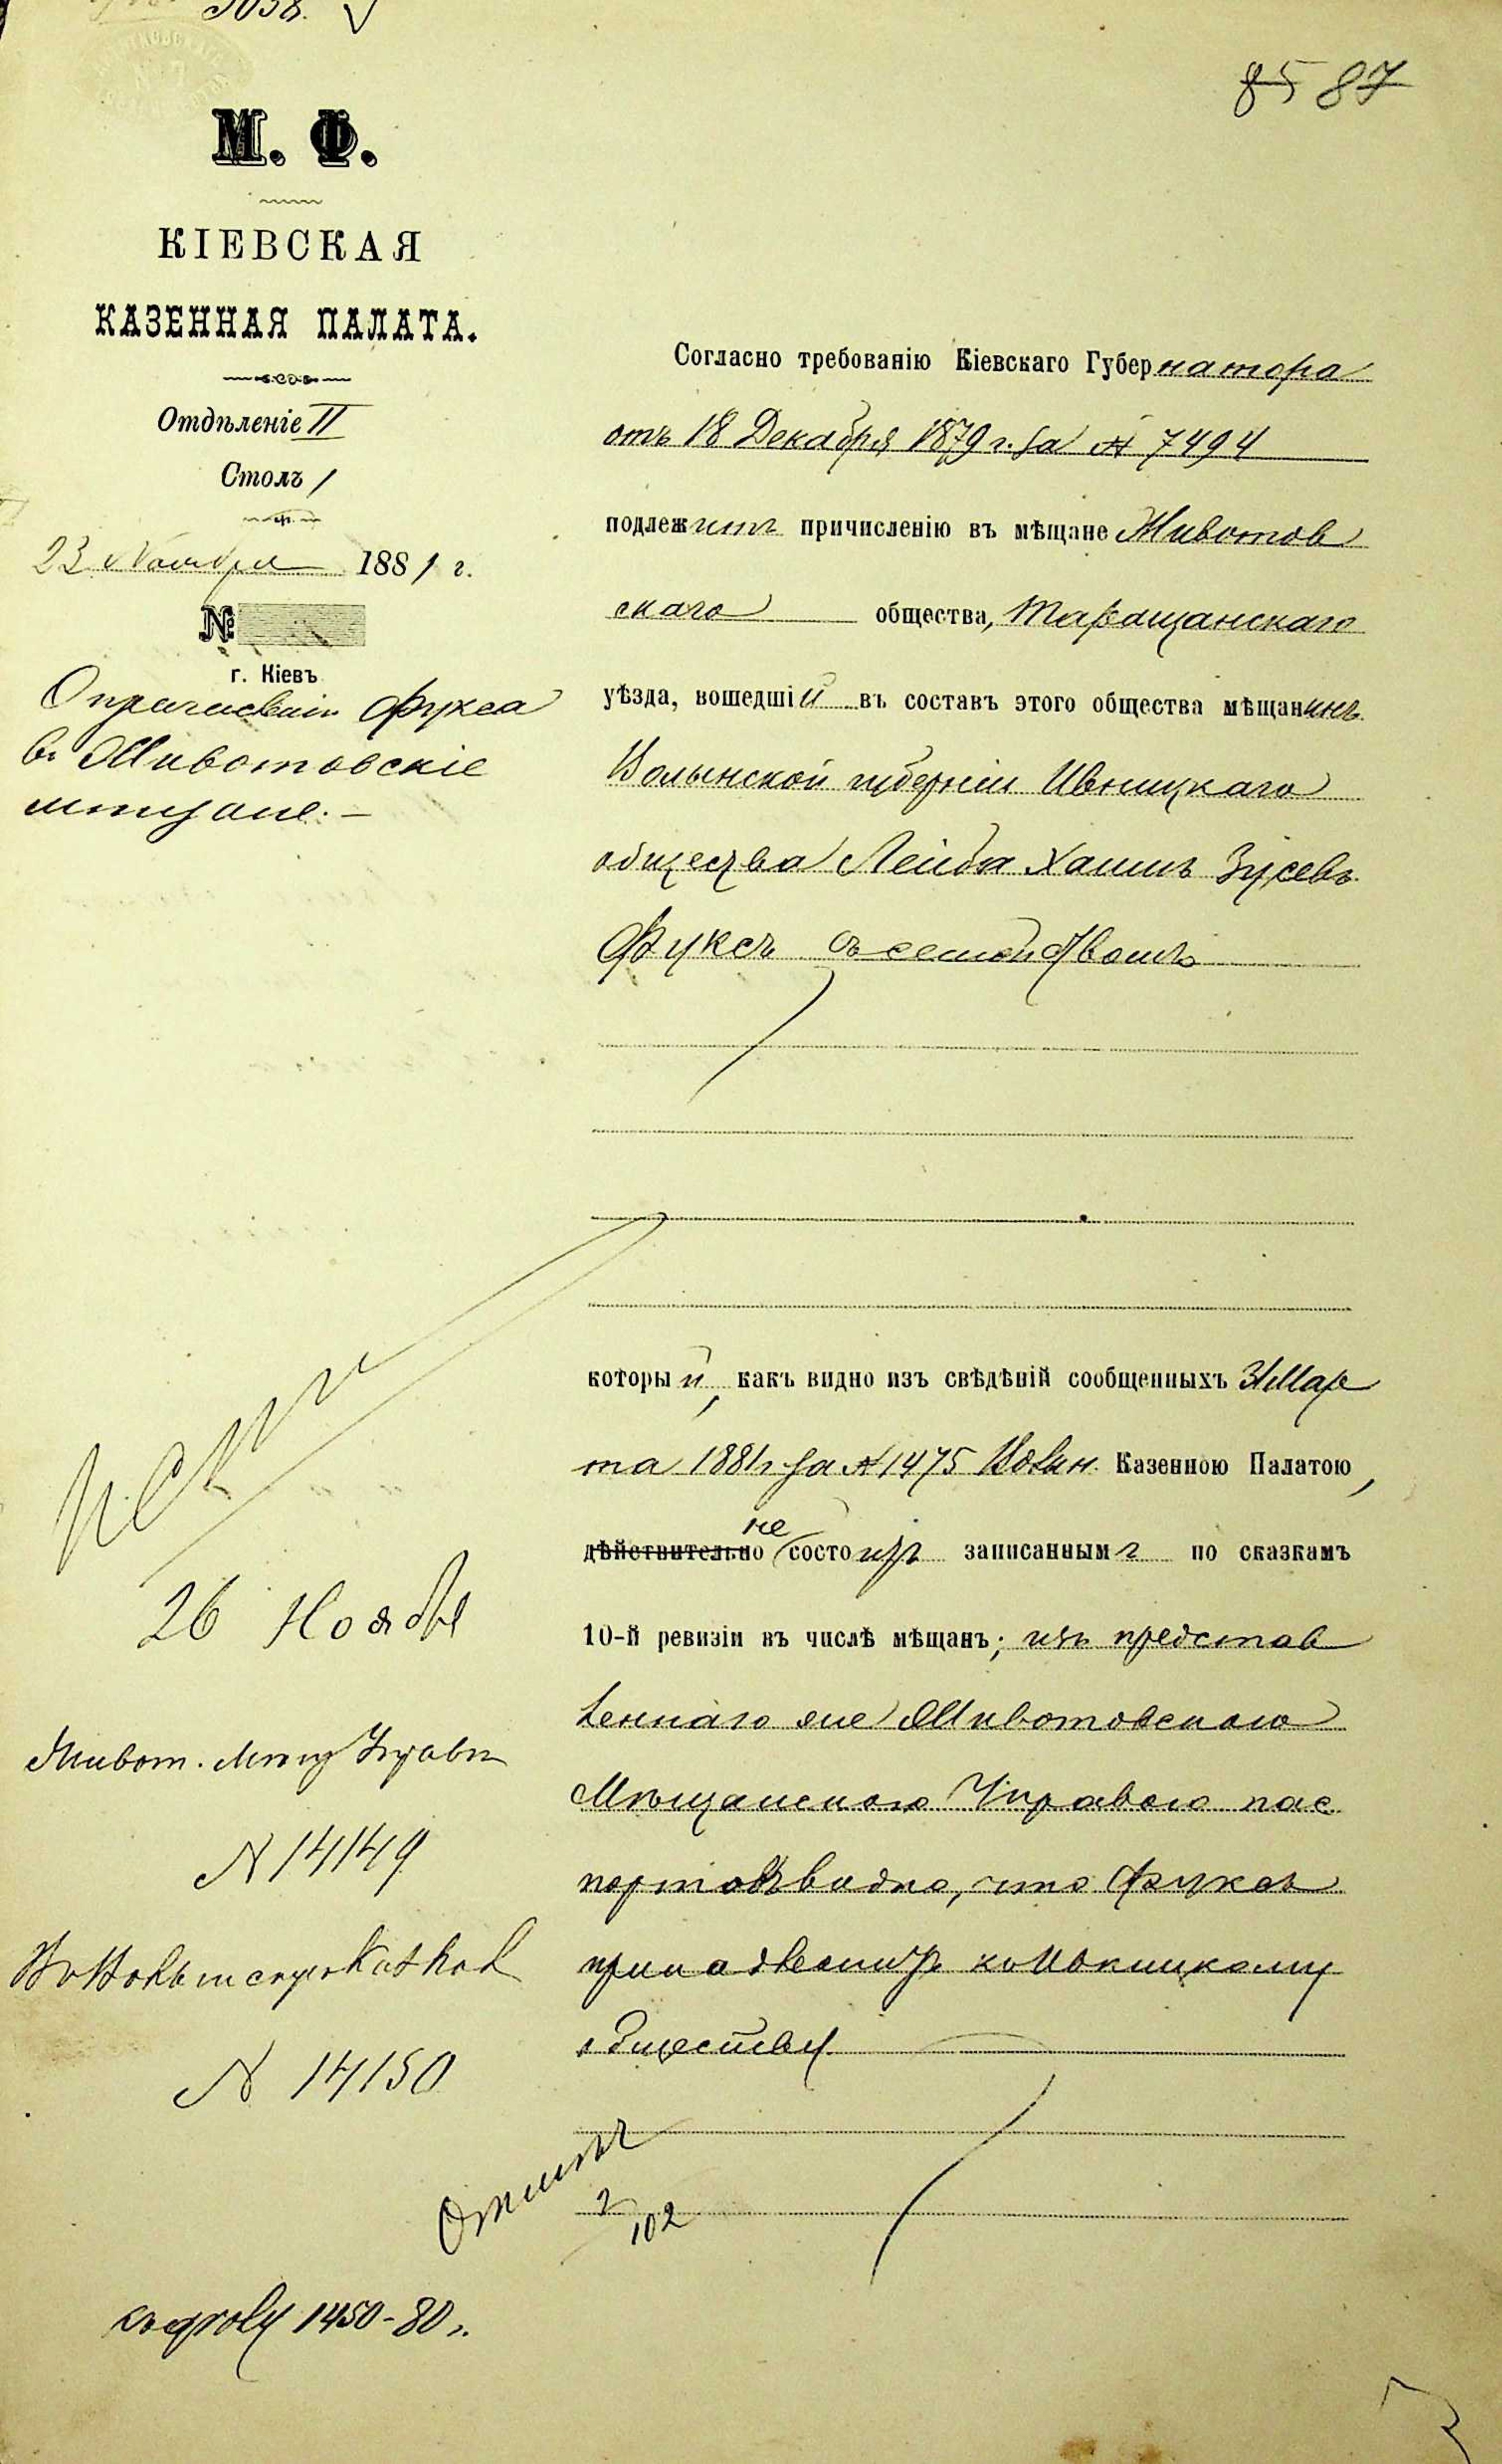 5038.
85 87
М. Ф.
КІЕВСКАЯ
КАЗЕННАЯ ПАЛАТА.
Отдѣленіе II
Столъ 1
23 Ноября 1881 г.
№
г. Кіевъ
О причисленіи Фукса
въ Животовскіе
мѣщане. —
Согласно требованію Кіевскаго Губернатора
отъ 18 Декабря 1879 г. за № 7494
подлежитъ причисленію въ мѣщане Животов
скаго общества, Таращанскаго
уѣзда, вошедшій въ составъ этого общества мѣщанинъ
Волынской губерніи Ивницкаго
общества Лейба Хаимъ Зусевъ
Фуксъ съ семействомъ
который, какъ видно изъ свѣдѣній сообщенныхъ 31 Мар
та 1881 г. за № 1475 Волын. Казенною Палатою,
дѣйствительно не состоитъ записаннымъ по сказкамъ
10-й ревизіи въ числѣ мѣщанъ; изъ представ
леннаго же Животовскою
Мѣщанскою Управою пас
порта видно, что Фуксъ
принадлежитъ къ Ивницкому
обществу.
26 Ноября
Живот. Мѣщ Управѣ
№ 14149
№ 14150
102
къ дѣлу 1450-80 г.